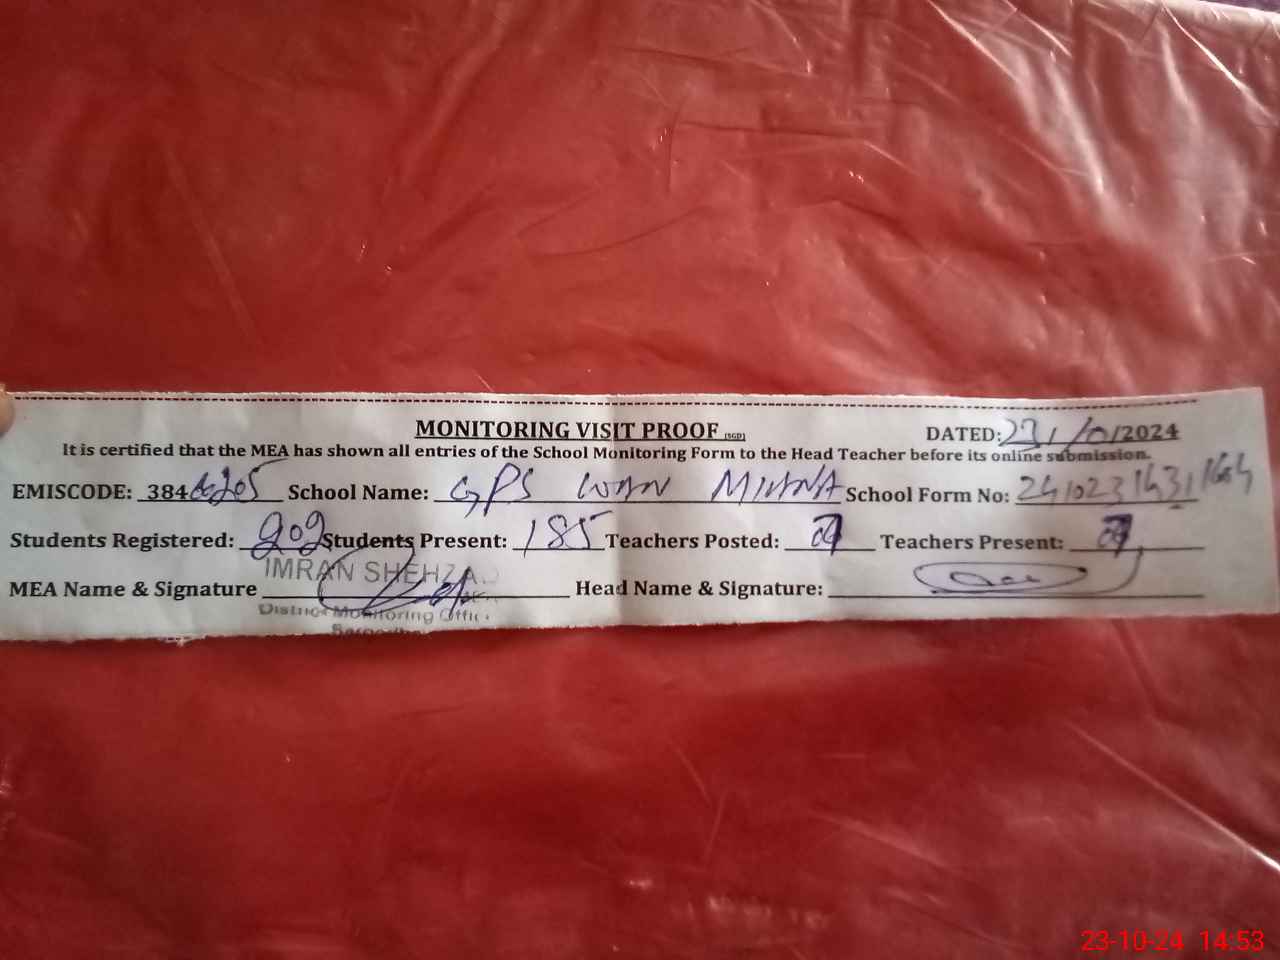 MONITORING VISIT PROOF (SGD) DATED: 23/10/2024
It is certified that the MEA has shown all entries of the School Monitoring Form to the Head Teacher before its online submission.
EMISCODE: 384 School Name: GPS WAN MIANA School Form No:
Students Registered: 209 Students Present: 185 Teachers Posted: Teachers Present:
IMRAN SHEHZAD
MEA Name & Signature Head Name & Signature:
District Monitoring Office
Sargodha
23-10-24 14:53